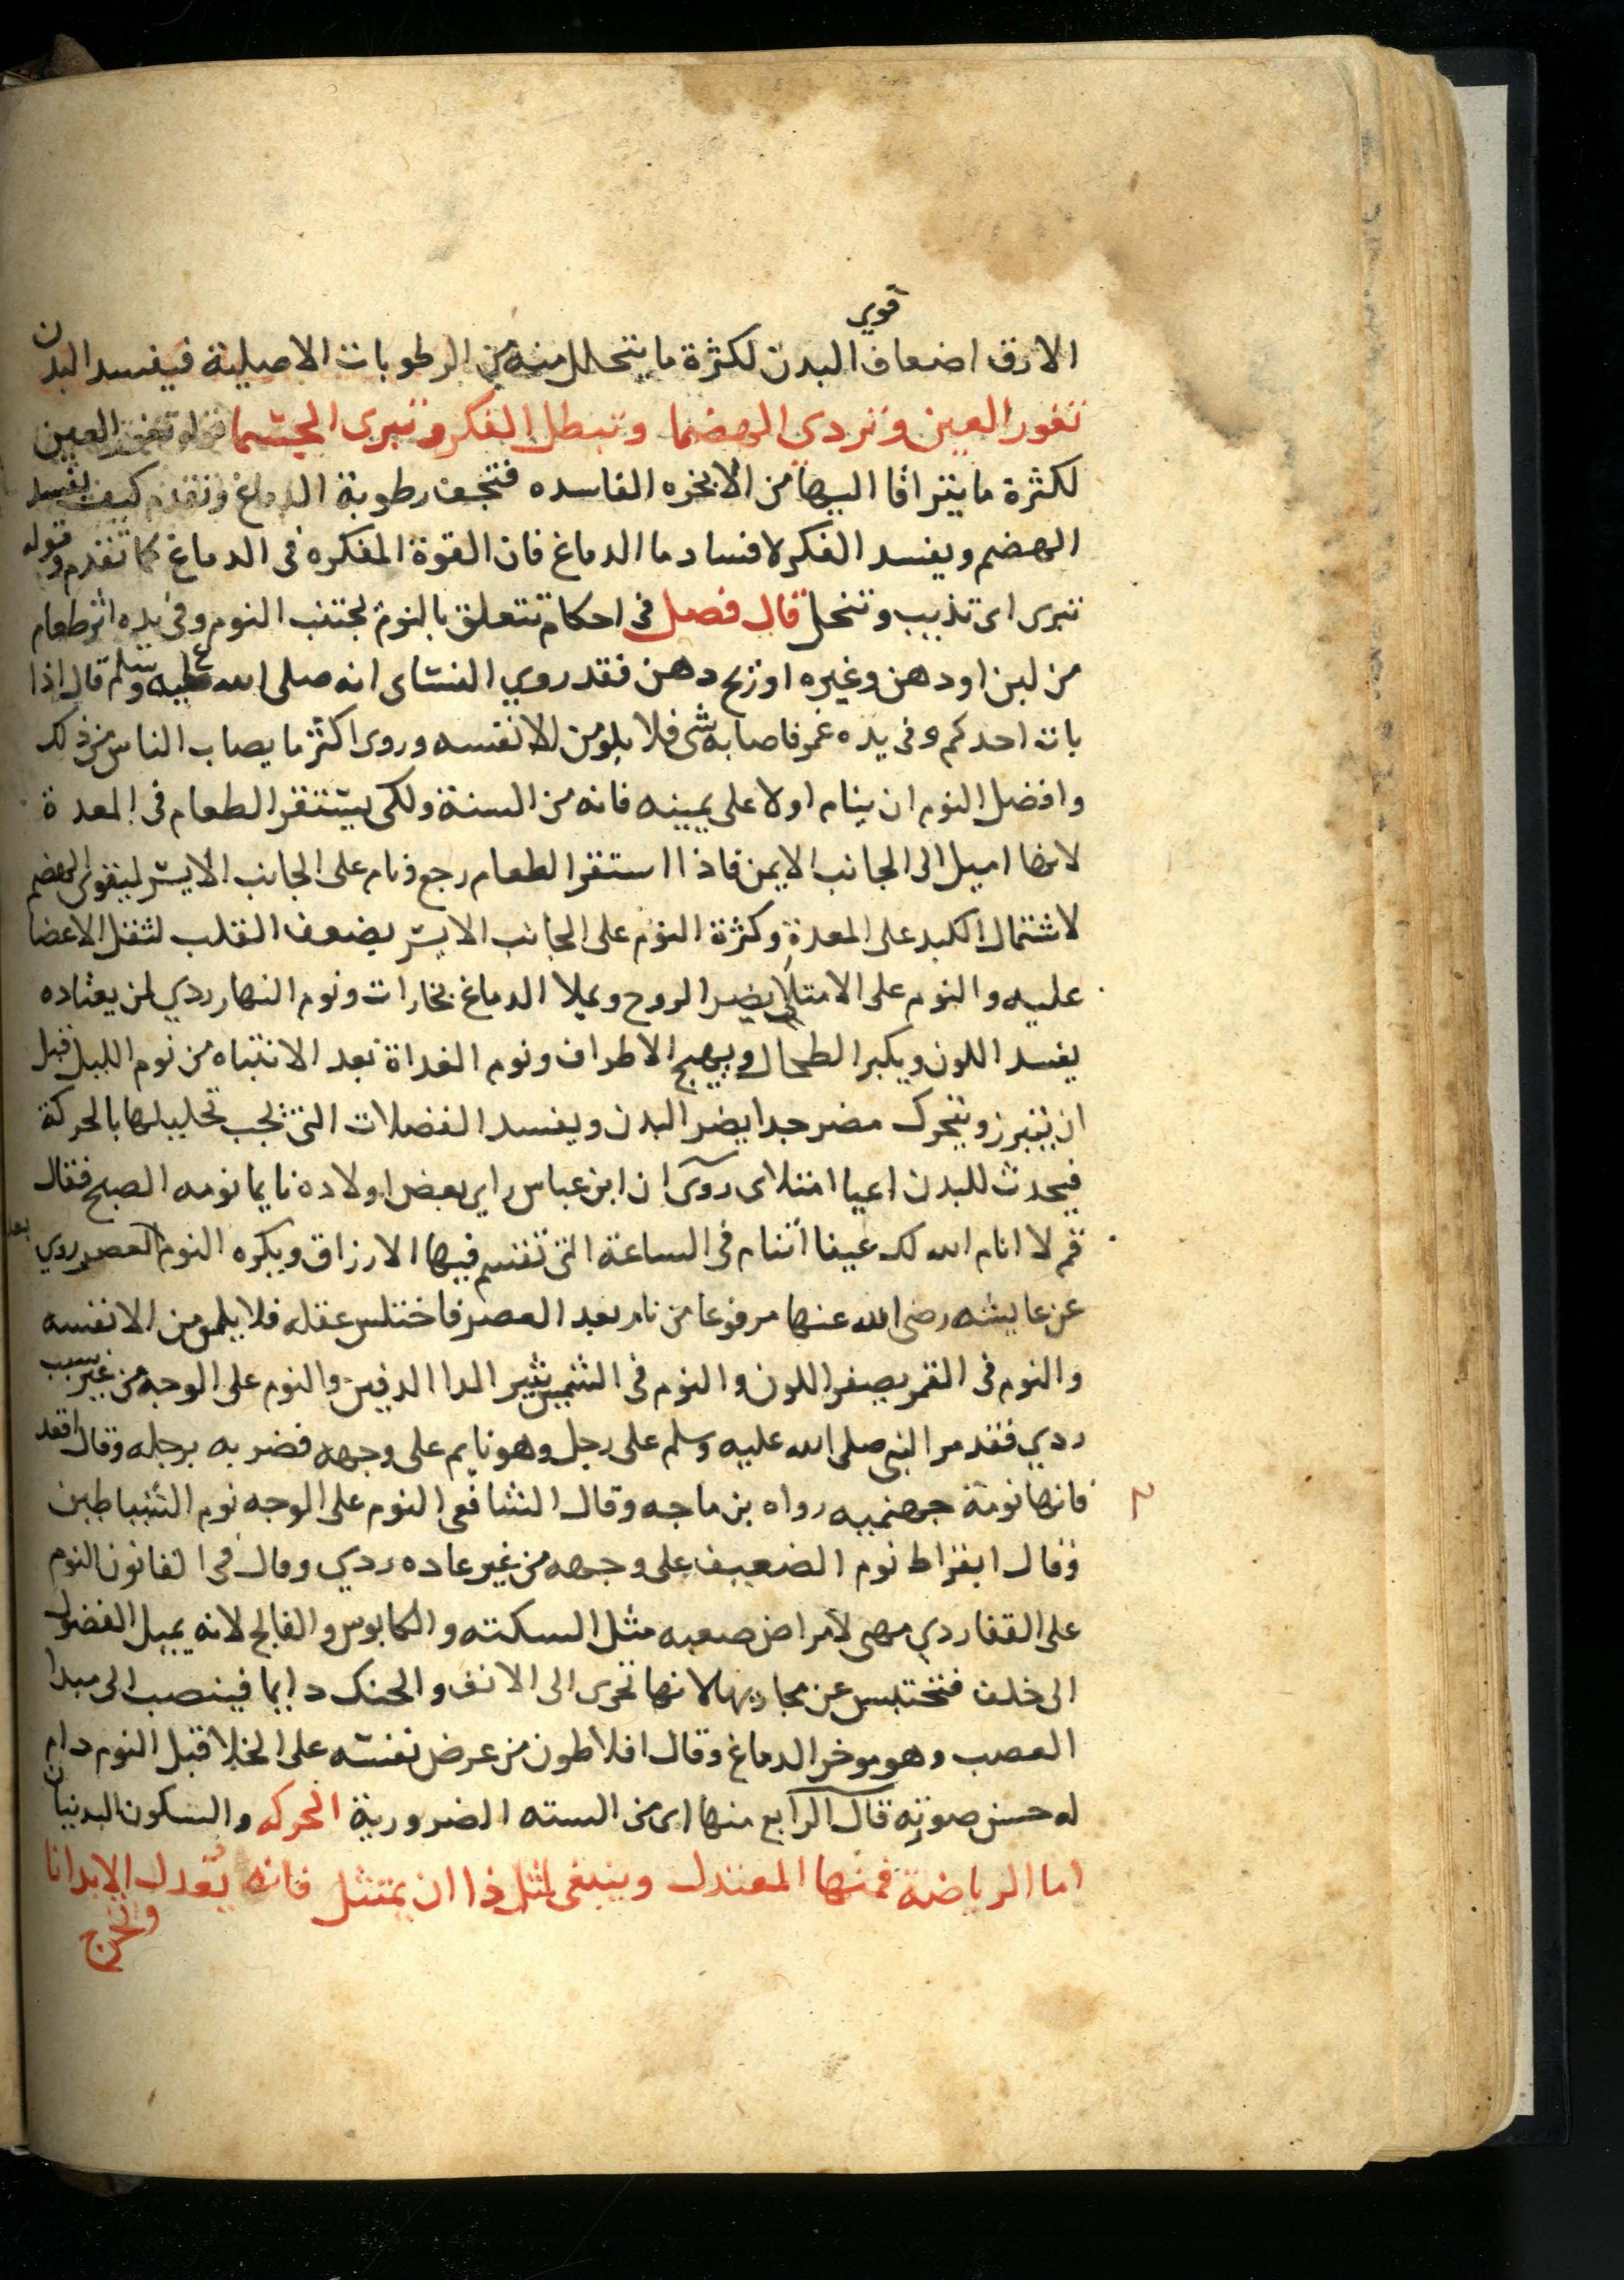 قوي
الارق اضعاف البدن لكثرة ما يتحلل منه من الرطوبات الاصلية فيفسد البدن
تغور العين وتردي الهضما وتبطل الفكر وتبرى الجسما العين
لكثرة ما يتراقا اليها من الابخره الفاسده فتجف رطوبة الدماغ وتقدم كيف يفسد
الهضم ويفسد الفكر لافساد ما الدماغ فان القوة المفكره فى الدماغ كما تقدم وقوله
تبرى اى تذيب وتنحل قال فصل فى احكام تتعلق بالنوم يجتنب النوم وفى يده اثر طعام
من لبن او دهن وغيره او زنخ دهن فقد روي النسائى انه صلى الله عليه وسلم قال اذا
بات احدكم وفى يده غمر فاصابه شى فلا يلومن الا نفسه وروى اكثر ما يصاب الناس من ذلك
وافضل النوم ان ينام اولا على يمينه فانه من السنة ولكى يستقر الطعام فى المعدة
لانها اميل الى الجانب الايمن فاذا استقر الطعام رجع ونام على الجانب الايسر ليقوى الهضم
لاشتمال الكبد على المعدة وكثرة النوم على الجانب الايسر يضعف القلب لثقل الاعضا
عليه والنوم على الامتلا يضر الروح ويملا الدماغ بخارات ونوم النهار ردي لمن يعتاده
يفسد اللون ويكبر الطحال ويهيج الاطراف ونوم الغداة بعد الانتباه من نوم الليل قبل
ان يتبرز ويتحرك مضر جدا يضر البدن ويفسد الفضلات التى يجب تحليلها بالحركة
فيحدث للبدن اعيا امتلاى روى ان ابن عباس راي بعض اولاده نايما نومه الصبح فقال
قم لا انام الله لك عينا اتنام فى الساعة التى تقتسم فيها الارزاق ويكره النوم بعد العصر روي
عن عايشه رضى الله عنها مرفوعا من نام بعد العصر فاختلس عقله فلا يلومن الا نفسه
والنوم فى القمر يصفر اللون والنوم فى الشمس يثير الدا الدفين والنوم على الوجه من غير سبب
ردي فقد مر النبى صلى الله عليه وسلم على رجل وهو نايم على وجهه فضربه برجله وقال اقعد
فانها نومة جهنميه رواه بن ماجه وقال الشافعى النوم على الوجه نوم الشياطين
وقال ابقراط نوم الضعيف على وجهه من غير عاده ردي وقال فى القانون النوم
على القفا ردي مهى لامراض صعبه مثل السكته والكابوس والفالج لانه يميل الفضول
الى خلف فتحتبس عن مجاريها لانها تجرى الى الانف والحنك دايما فينصب الى مبدا
العصب وهو موخر الدماغ وقال افلاطون من عرض نفسه على الخلا قبل النوم دام
له حسن صوته قال الرابع منها اى من السته الضرورية الحركه والسكون البدنيان
اما الرياضة فمنها المعتدل وينبغى لمثل ذا ان يمتثل فانه يعدل الابدانا
وتخرج